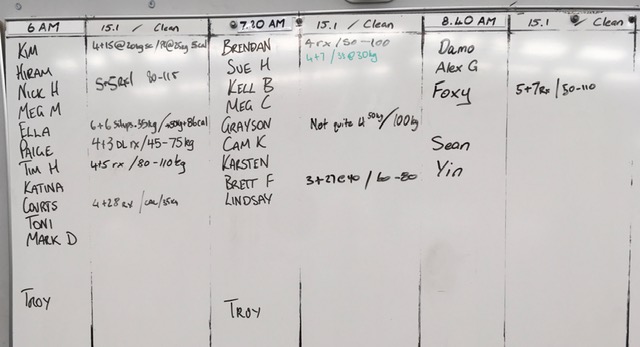 6 AM 15.1 / Clean 7.20 AM 15.1 / Clean 8.40 AM 15.1 / Clean
KIM 4+15@20kg
HIRAM
NICK H 80-115
MEG M
ELLA 6+6 situps.35kg/
PAIGE 4+3 DL rx/45-75kg
TIM H 4+5 rx/80-110kg
KATINA
COURTS 4+28 RX /
TONI
MARK D
TROY
BRENDAN 4 rx/50-100
SUE H 4+7/35@30kg
KELL B
MEG C
GRAYSON Not quite 4 50kg/100kg
CAM K
KARSTEN
BRETT F 3+27@40 / 60-80
LINDSAY
TROY
Damo
Alex G
Foxy 5+7Rx/50-110
Sean
Yin